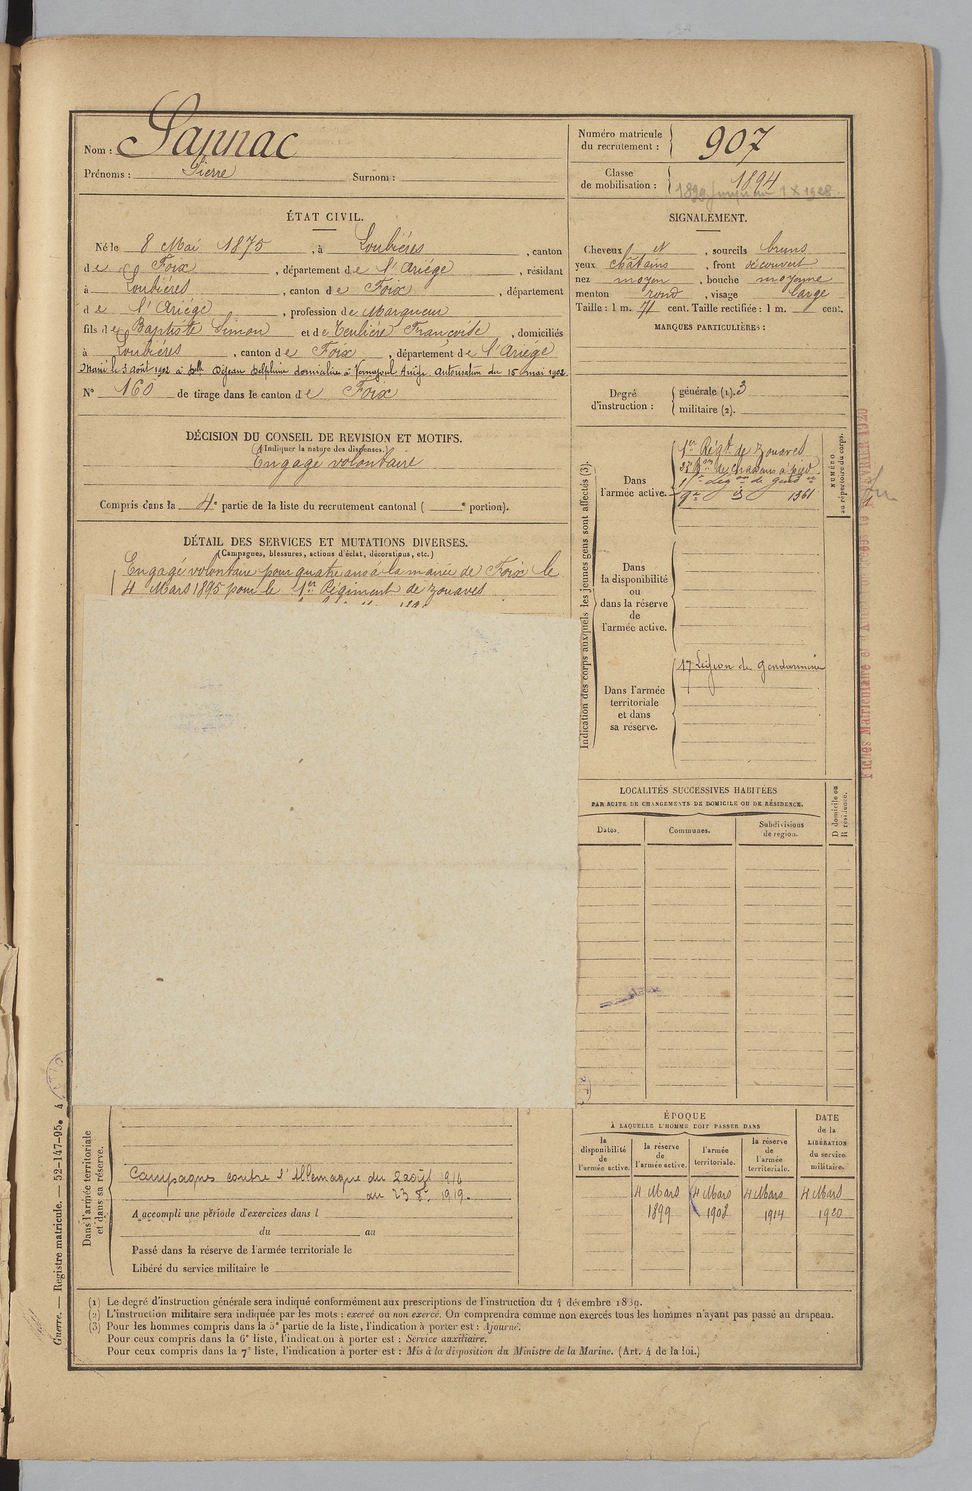 Nom : Sannac
Prénoms : Pierre Surnom :
Numéro matricule du recrutement : 907
Classe de mobilisation : 1894
ÉTAT CIVIL.
Né le 8 Mai 1875, à Loubières, canton
de Foix, département de l'Ariège, résidant
à Loubières, canton de Foix, département
de l'Ariège, profession de Marqueur
fils de Baptiste Simon et de Teulière Françoise, domiciliés
à Loubières, canton de Foix, département de l'Ariège
Marié le 3 août 1902 à Delle Dejean Delphine domiciliée à Vernajoul Ariège. Autorisation du 15 mai 1902.
N° 160 de tirage dans le canton de Foix
SIGNALEMENT.
Cheveux N, sourcils bruns
yeux châtains, front découvert
nez moyen, bouche moyenne
menton rond, visage large
Taille : 1 m. 71 cent. Taille rectifiée : 1 m. cent.
MARQUES PARTICULIÈRES :
Degré d'instruction : générale (1). 3
militaire (2).
DÉCISION DU CONSEIL DE REVISION ET MOTIFS.
(Indiquer la nature des dispenses.)
Engagé volontaire
Compris dans la 4e partie de la liste du recrutement cantonal ( e portion).
DÉTAIL DES SERVICES ET MUTATIONS DIVERSES.
(Campagnes, blessures, actions d'éclat, décorations, etc.)
Engagé volontaire pour quatre ans à la mairie de Foix le
4 Mars 1895 pour le 1er Régiment de zouaves
Indication des corps auxquels les jeunes gens sont affectés (3).
Dans l'armée active.
1er Régt de Zouaves
NUMÉRO au répertoire du corps.
Dans la disponibilité ou dans la réserve de l'armée active.
Dans l'armée territoriale et dans sa réserve.
17 Légion de Gendarmerie
LOCALITÉS SUCCESSIVES HABITÉES
PAR SUITE DE CHANGEMENTS DE DOMICILE OU DE RÉSIDENCE.
Dates. Communes. Subdivisions de région. D domicile ou R résidence.
Dans l'armée territoriale et dans sa réserve.
Campagnes contre l'Allemagne du 2 août 1914
au 23 8bre 1919.
A accompli une période d'exercices dans l
du au
Passé dans la réserve de l'armée territoriale le
Libéré du service militaire le
ÉPOQUE
À LAQUELLE L'HOMME DOIT PASSER DANS
la disponibilité de l'armée active. la réserve de l'armée active. l'armée territoriale. la réserve de l'armée territoriale.
DATE de la LIBÉRATION du service militaire.
4 Mars 4 Mars 4 Mars 4 Mars
1899 1908 1914 1920
(1) Le degré d'instruction générale sera indiqué conformément aux prescriptions de l'instruction du 4 décembre 1889.
(2) L'instruction militaire sera indiquée par les mots : exercé ou non exercé. On comprendra comme non exercés tous les hommes n'ayant pas passé au drapeau.
(3) Pour les hommes compris dans la 5e partie de la liste, l'indication à porter est : Ajourné.
Pour ceux compris dans la 6e liste, l'indication à porter est : Service auxiliaire.
Pour ceux compris dans la 7e liste, l'indication à porter est : Mis à la disposition du Ministre de la Marine. (Art. 4 de la loi.)
Guerre. — Registre matricule. — 52-147-95.